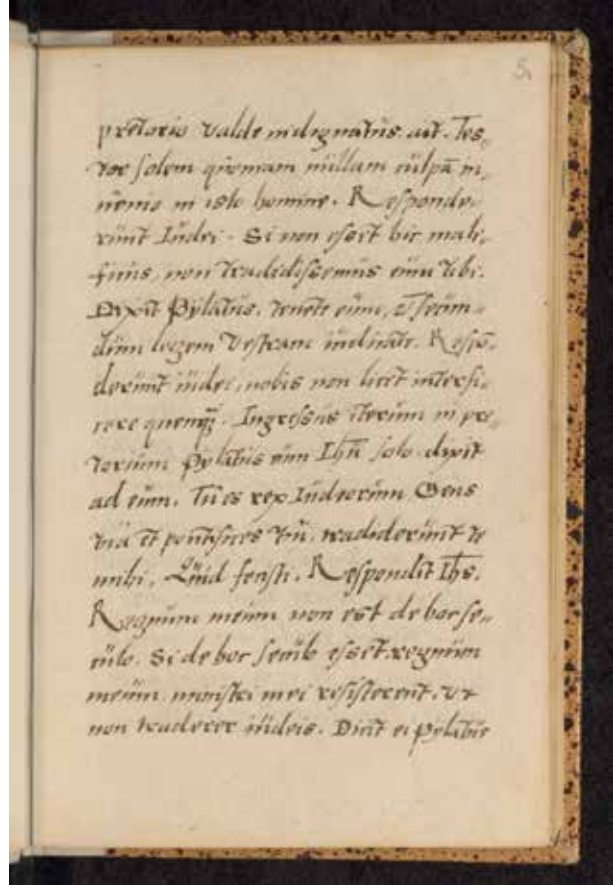 5
prętorio valde indignatus. ait. Tes„
tor solem quoniam nullam culpā in„
uenio in isto homine. Responde„
runt Iudei. Si non esset hic male„
ficus, non tradidissemus eum tibi.
Dixit Pylatus. tenete eum, et secun„
dum legem vestram iudicate. Respō„
derunt iudei, nobis non licet interfi„
cere quemq̃. Ingressus iterum in pre„
torium Pylatus cum Ihū solo dixit
ad eum. Tu es rex Iudeorum Gens
tua et pontifices tui. tradiderunt te
mihi. Quid fecisti. Respondit Ihs.
Regnum meum non est de hoc se„
culo. Si de hoc seculo esset regnum
meum. ministri mei resisterent. vt
non traderer iudeis. Dicit ei Pylatus